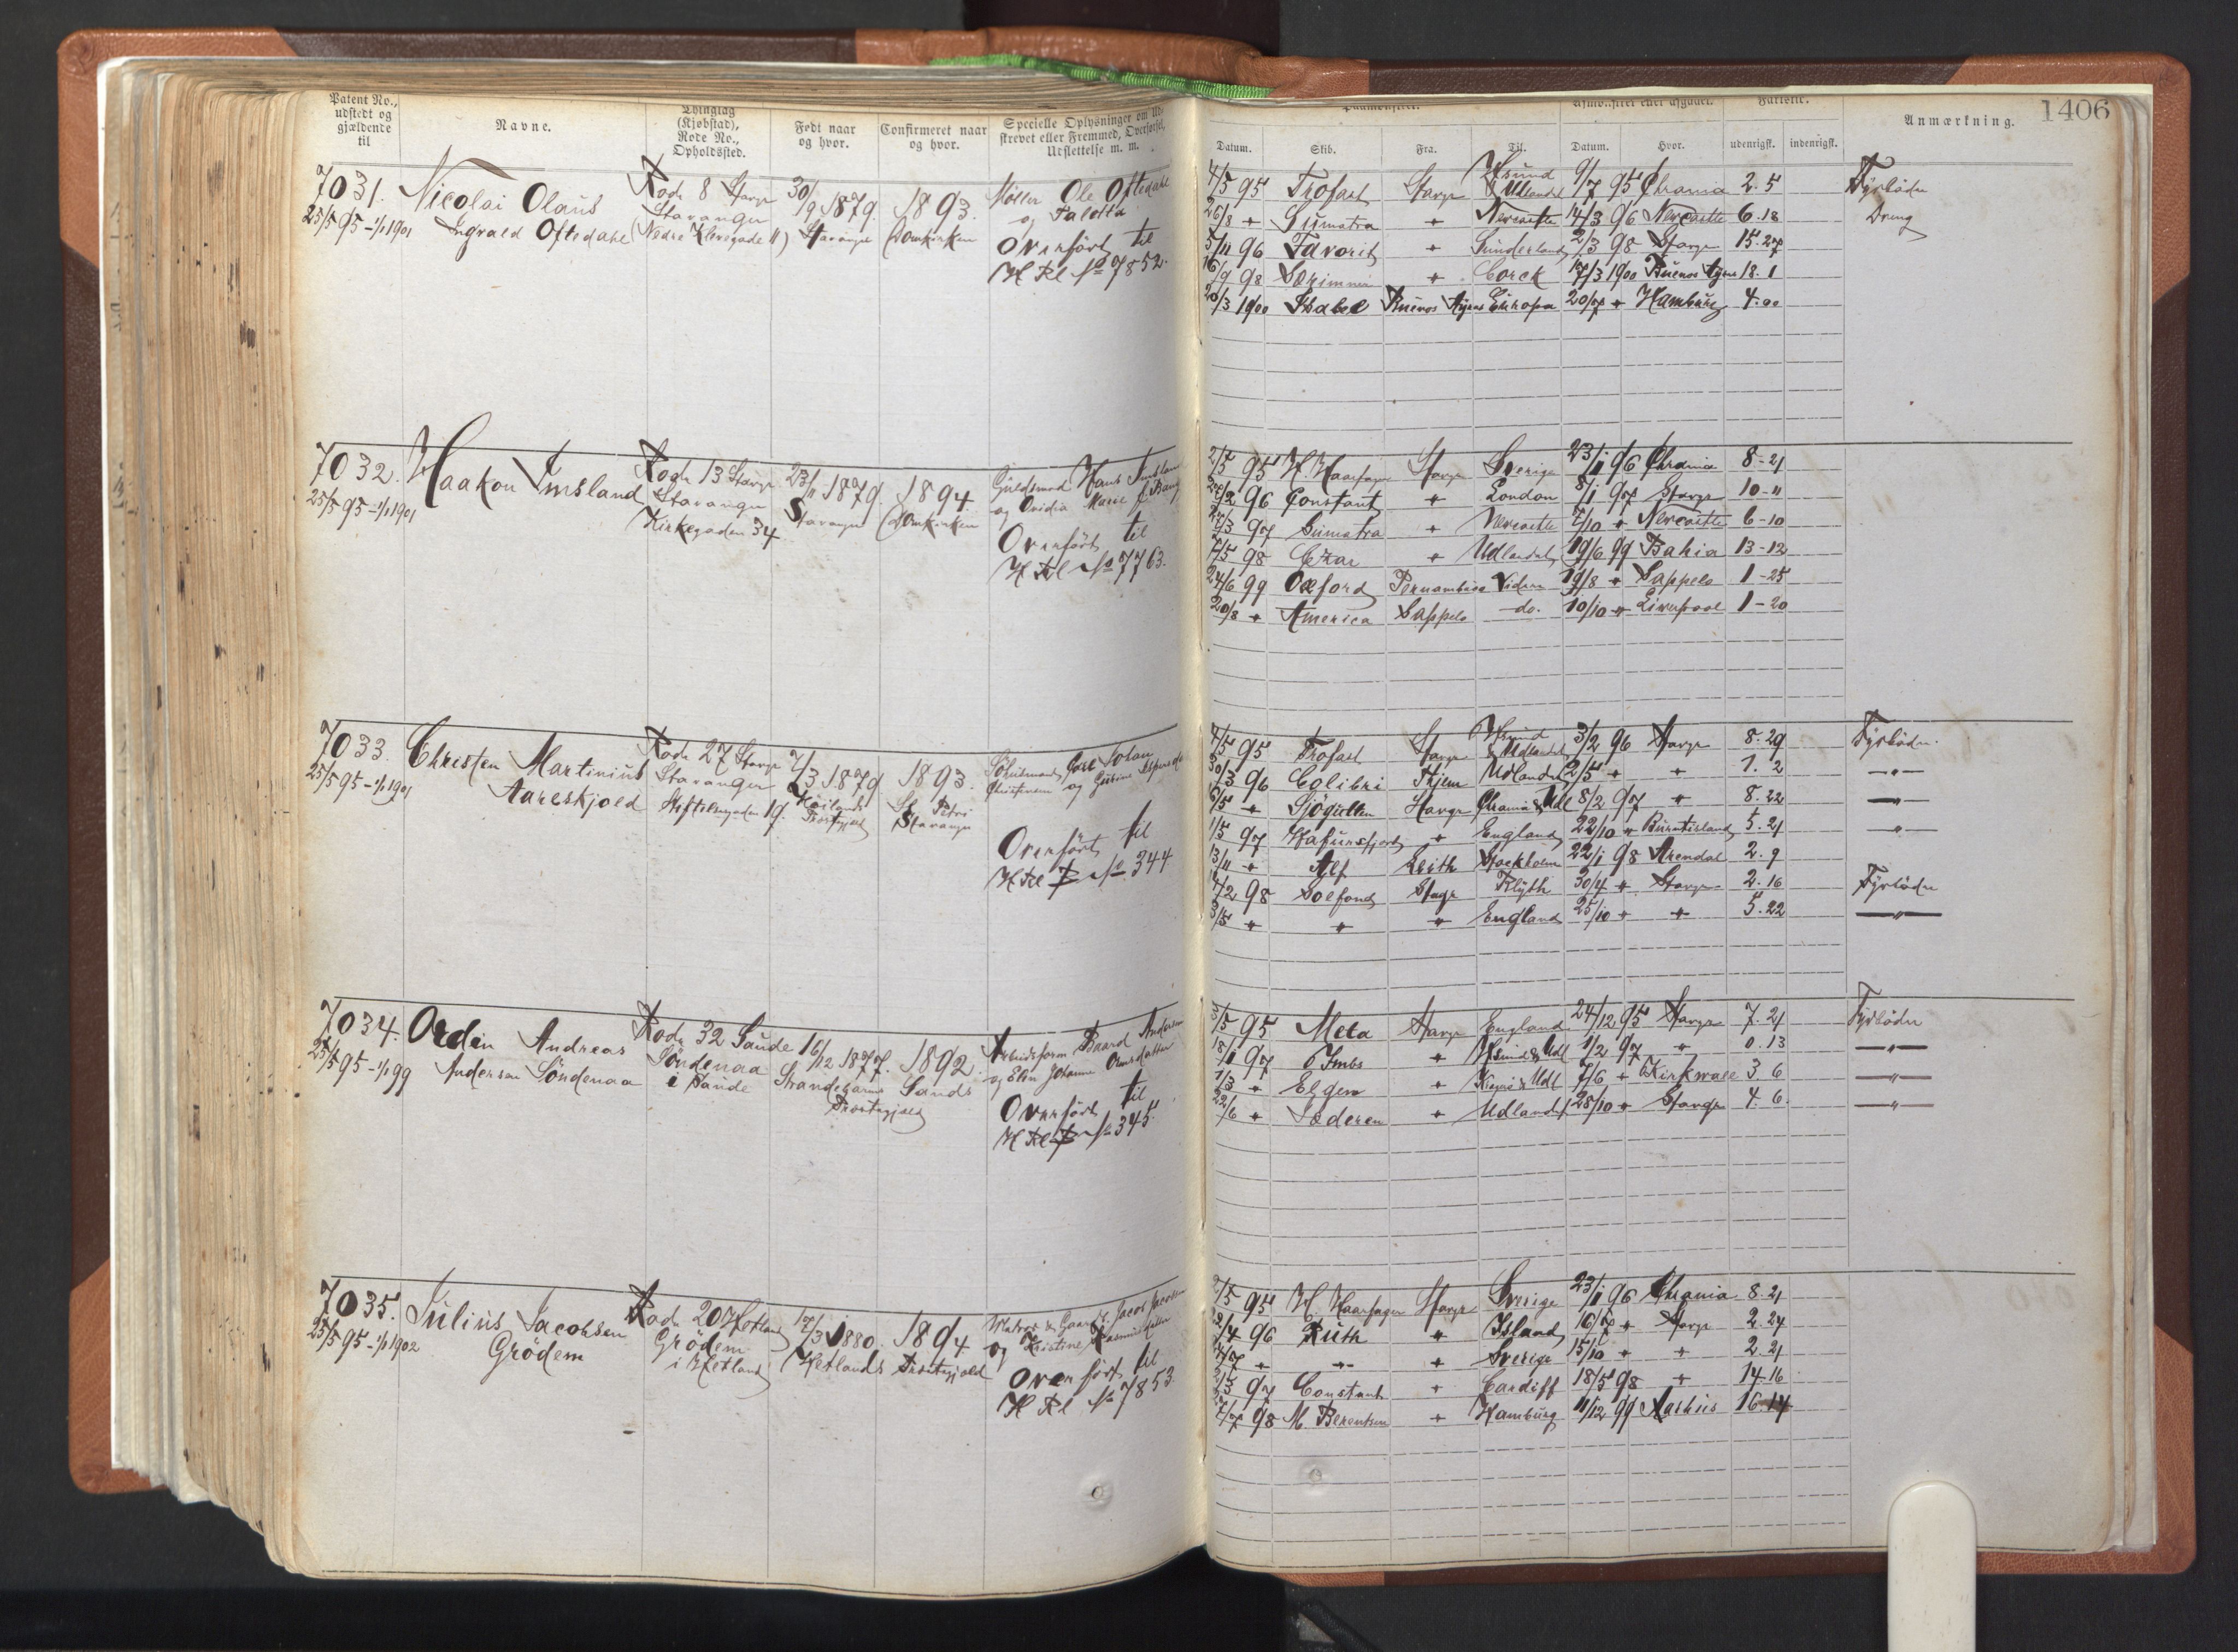 Patent No.,
udstedt og
gjældende
til
Navne.
Thinglag
(Kjøbstad),
Rode No.,
Opholdssted.
Født naar
og hvor.
Confirmeret naar
og hvor.
Specielle Oplysninger om
strevet eller Fremmed, Overførsel,
Udslettelse m. m.
7031.
25/5 95 - 1/1 1901
Nicolai Olaus
Ingvald Oftedahl
Rode 8 Starge
Stavanger
(Nedre Klevegade 11)
30/9 1879.
Stavanger
1893.
Domkirken
Möller Ole Oftedahl
og Talette
Overført til
H Rl No 7852.
7032.
25/5 95 - 1/1 1901
Haakon Imsland
Rode 13 Starge
Stavanger
Kirkegaden 34
23/11 1879.
Stavanger
1894.
Domkirken
Guldsmed Hans Imsland
og Ovidia Marie f. Bang
Overført til
H Rl No 7763.
7033.
25/5 95 - 1/1 1901
Christen Martinius
Aareskjold
Rode 27 Starge
Stavanger
19.
7/3 1879
Höilands
Præstegjeld
1893.
St Petri
Stavanger
Johan
og
Overført til
H Rl No 344
7034.
25/5 95 - 1/1 99
Odin Andreas
Andersen Söndenaa
Rode 32 Saude
Söndenaa
i Saude
16/12 1877.
Strandebarms
Præstegjeld
1892.
Sands
Baard Andersen
og Elen Johanne
Overført til
H Rl No 345.
7035.
25/5 95 - 1/1 1902
Julius Jacobsen
Grödem
Rode 20 Hetland
Grödem
i Hetland
17/3 1880.
Hetlands
1894
Præstegjeld
Matros & Jacob Jacobsen
og Kristine
Overført til
H Rl No 7853.
1406
Datum.
Skib.
Fra.
Til.
Datum.
Hvor.
udenrigsk.
indenrigsk.
Anmærkning.
4/5 95 Trofast Starge Hsund & Udlandet 9/7 95 Chrania 2.5 Fyrbøder
26/8 " Sumatra " Newcastle 14/3 96 Newcastle 6.18 Dreng
5/11 96 Favorit " Sunderland 2/3 98 Starge 15.27
16/9 98 Særimner " Corck 17/3 1900 Buenos Ayres 18.1
20/3 1900 Isabel Buenos Ayres Europa 20/7 " Hamburg 4.00
2/5 95 H. Haarfager Starge Sverige 23/1 96 Chrania 8-21
27/2 96 Constant " London 8/1 97 Starge 10-11
27/3 97 Sumatra " Newcastle 7/10 " Newcastle 6-10
7/5 98 Czar " Udlandet 19/6 99 Bahia 13-12
24/6 99 Oxford Pernambuco Videre 19/8 " Sappelo 1-25
20/8 " America Sappelo -do- 10/10 " Liverpool 1-20
4/5 95 Trofast Starge Hsund & Udlandet 3/2 96 Starge 8.29 Fyrbøder.
30/3 96 Colibri Skjem Udlandet 2/5 " " 1.2 — " —
6/5 " Sjögutten Starge Chrania & Udl 8/2 97 " 8.22 — " —
1/5 97 Hafursfjord " England 22/10 " Burntisland 5.21 — " —
13/11 " Alf Leith Stockholm 22/1 98 Arendal 2.9
14/2 98 Solfond Starge Blyth 30/4 " Starge 2.16 Fyrbøder
3/5 " " " England 25/10 " " 5.22 — " —
3/5 95 Meta Starge England 24/12 95 Starge 7.21 Fyrbøder
18/1 97 Ombo " Hsund & Udl 1/2 97 " 0.13 — " —
1/3 " Elgen " & Udl 7/6 " Kirkwall 3 6 — " —
22/6 " Jæderen " Udlandet 28/10 " Starge 4.6. — " —
2/5 95 H. Haarfager Starge Sverige 23/1 96 Chrania 8.21
22/4 96 Ruth " Island 16/7 " Starge 2.24
24/7 " " " Sverige 15/10 " " 2.21
2/3 97 Constant " Cardiff 18/5 98 " 14-16
27/7 98 M. Berentsen " Hamburg 11/12 99 Aarhus 16.14